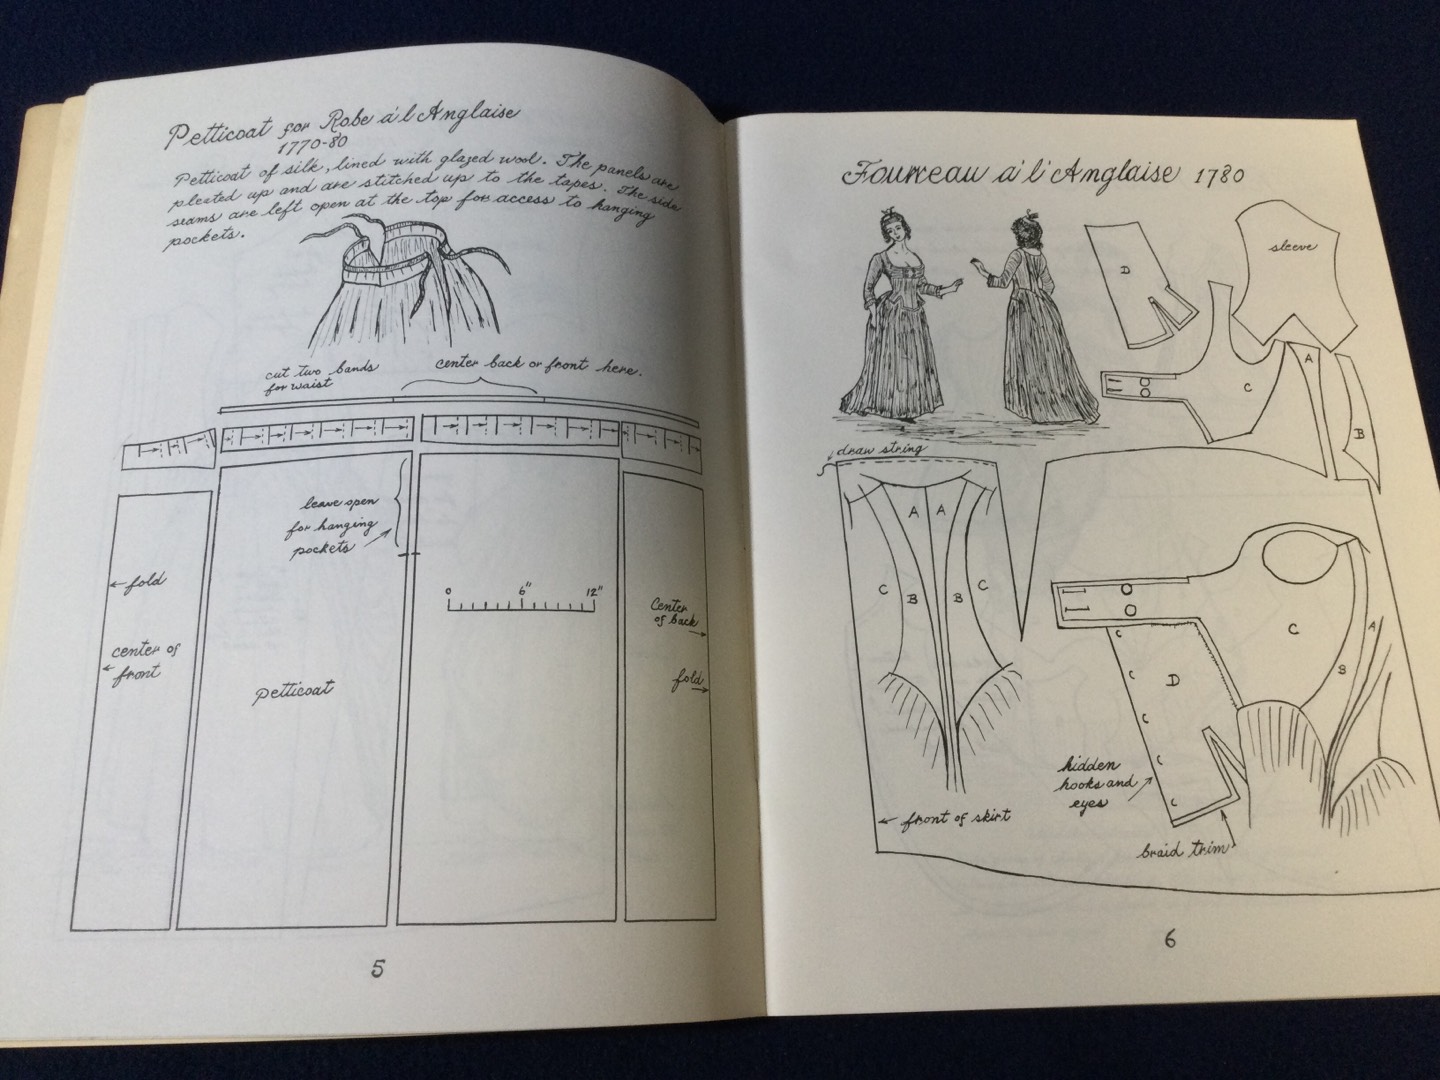 Petticoat for Robe a'l Anglaise
1770-80
Petticoat of silk, lined with glazed wool. The panels are
pleated up and are stitched up to the tapes. The side
seams are left open at the top for access to hanging
pockets.
cut two bands
for waist
center back or front here.
leave open
for hanging
pockets
fold
center of
front
petticoat
0 6" 12"
Center
of back
fold
5
Fourreau a' l' Anglaise 1780
D
sleeve
C
A
B
draw string
A A
C B B C
front of skirt
C
A
B
D
hidden
hooks and
eyes
braid trim
6